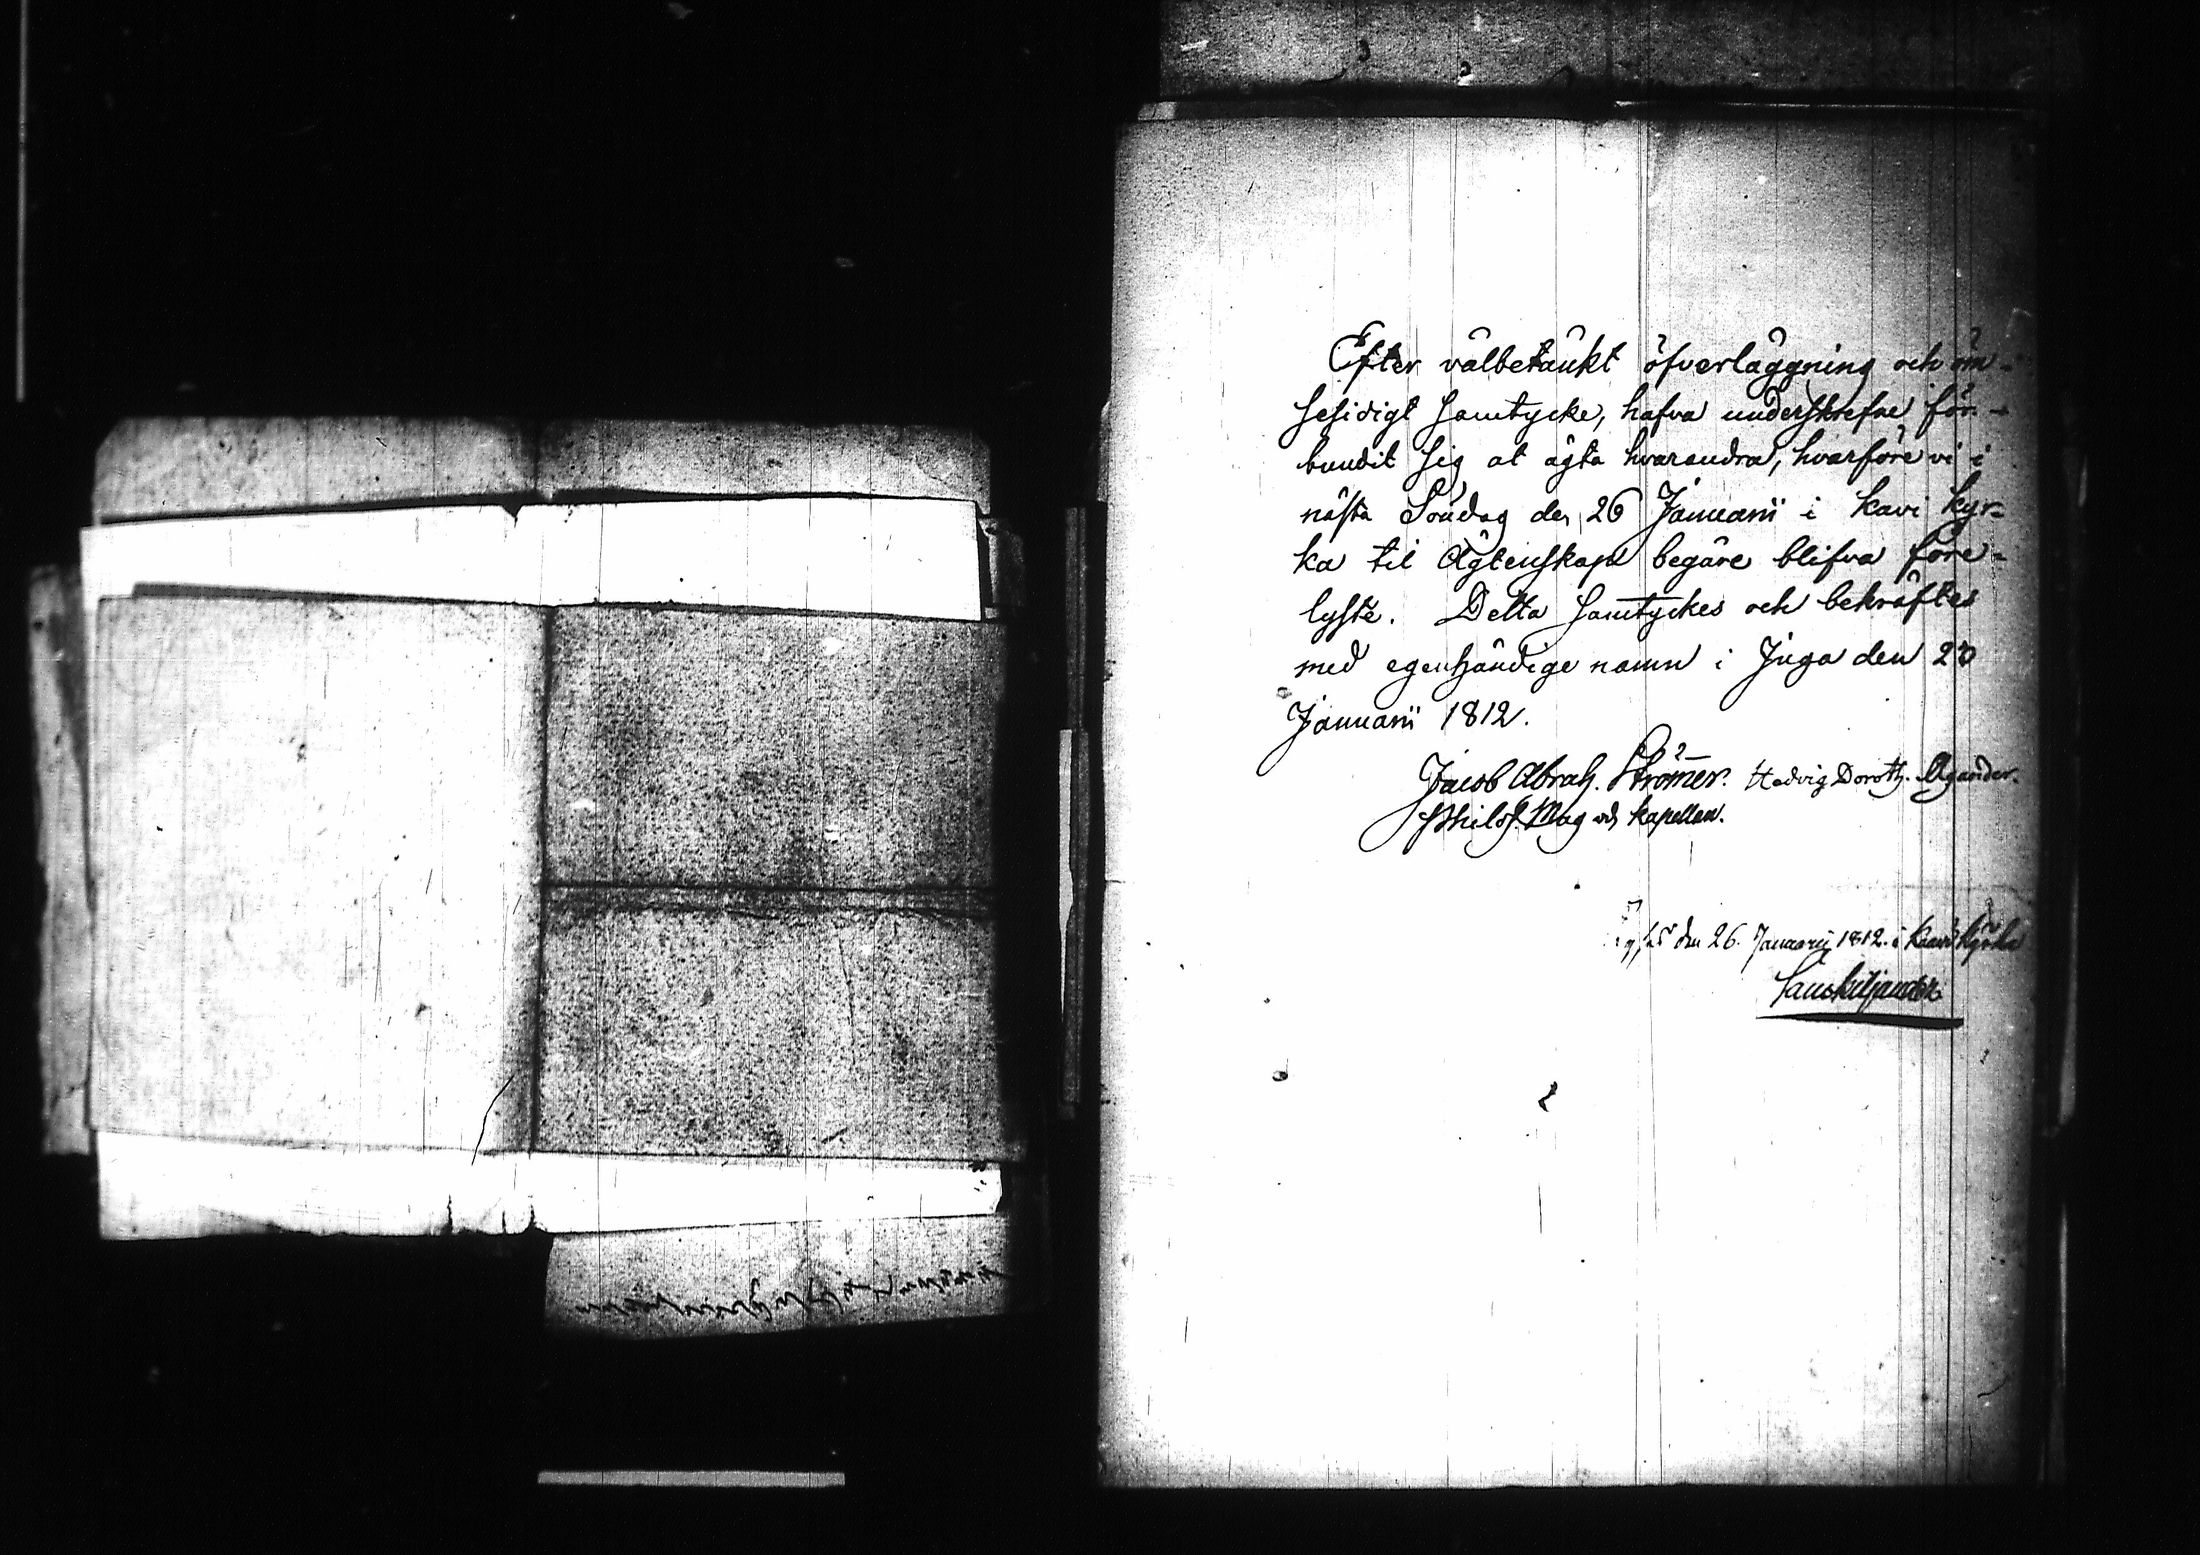 Efter välbetänkt öfverläggning och öm-
sesidigt samtycke, hafva underskrefne för-
bundit sig at ägta hvarandra, hvarföre vi i
nästa Söndag den 26 Januarii i Kavi kyr-
ka til Ägtenskap begäre blifva före-
lyste. Detta samtyckes och bekräftes
med egenhändige namn i Inga den 20
Januarii 1812.
Jacob Abrah. Strömer. Hedvig Doroth. Agander.
Philos. Mag och kapellan.
den 26. Januarii 1812. i Kavi kyrka